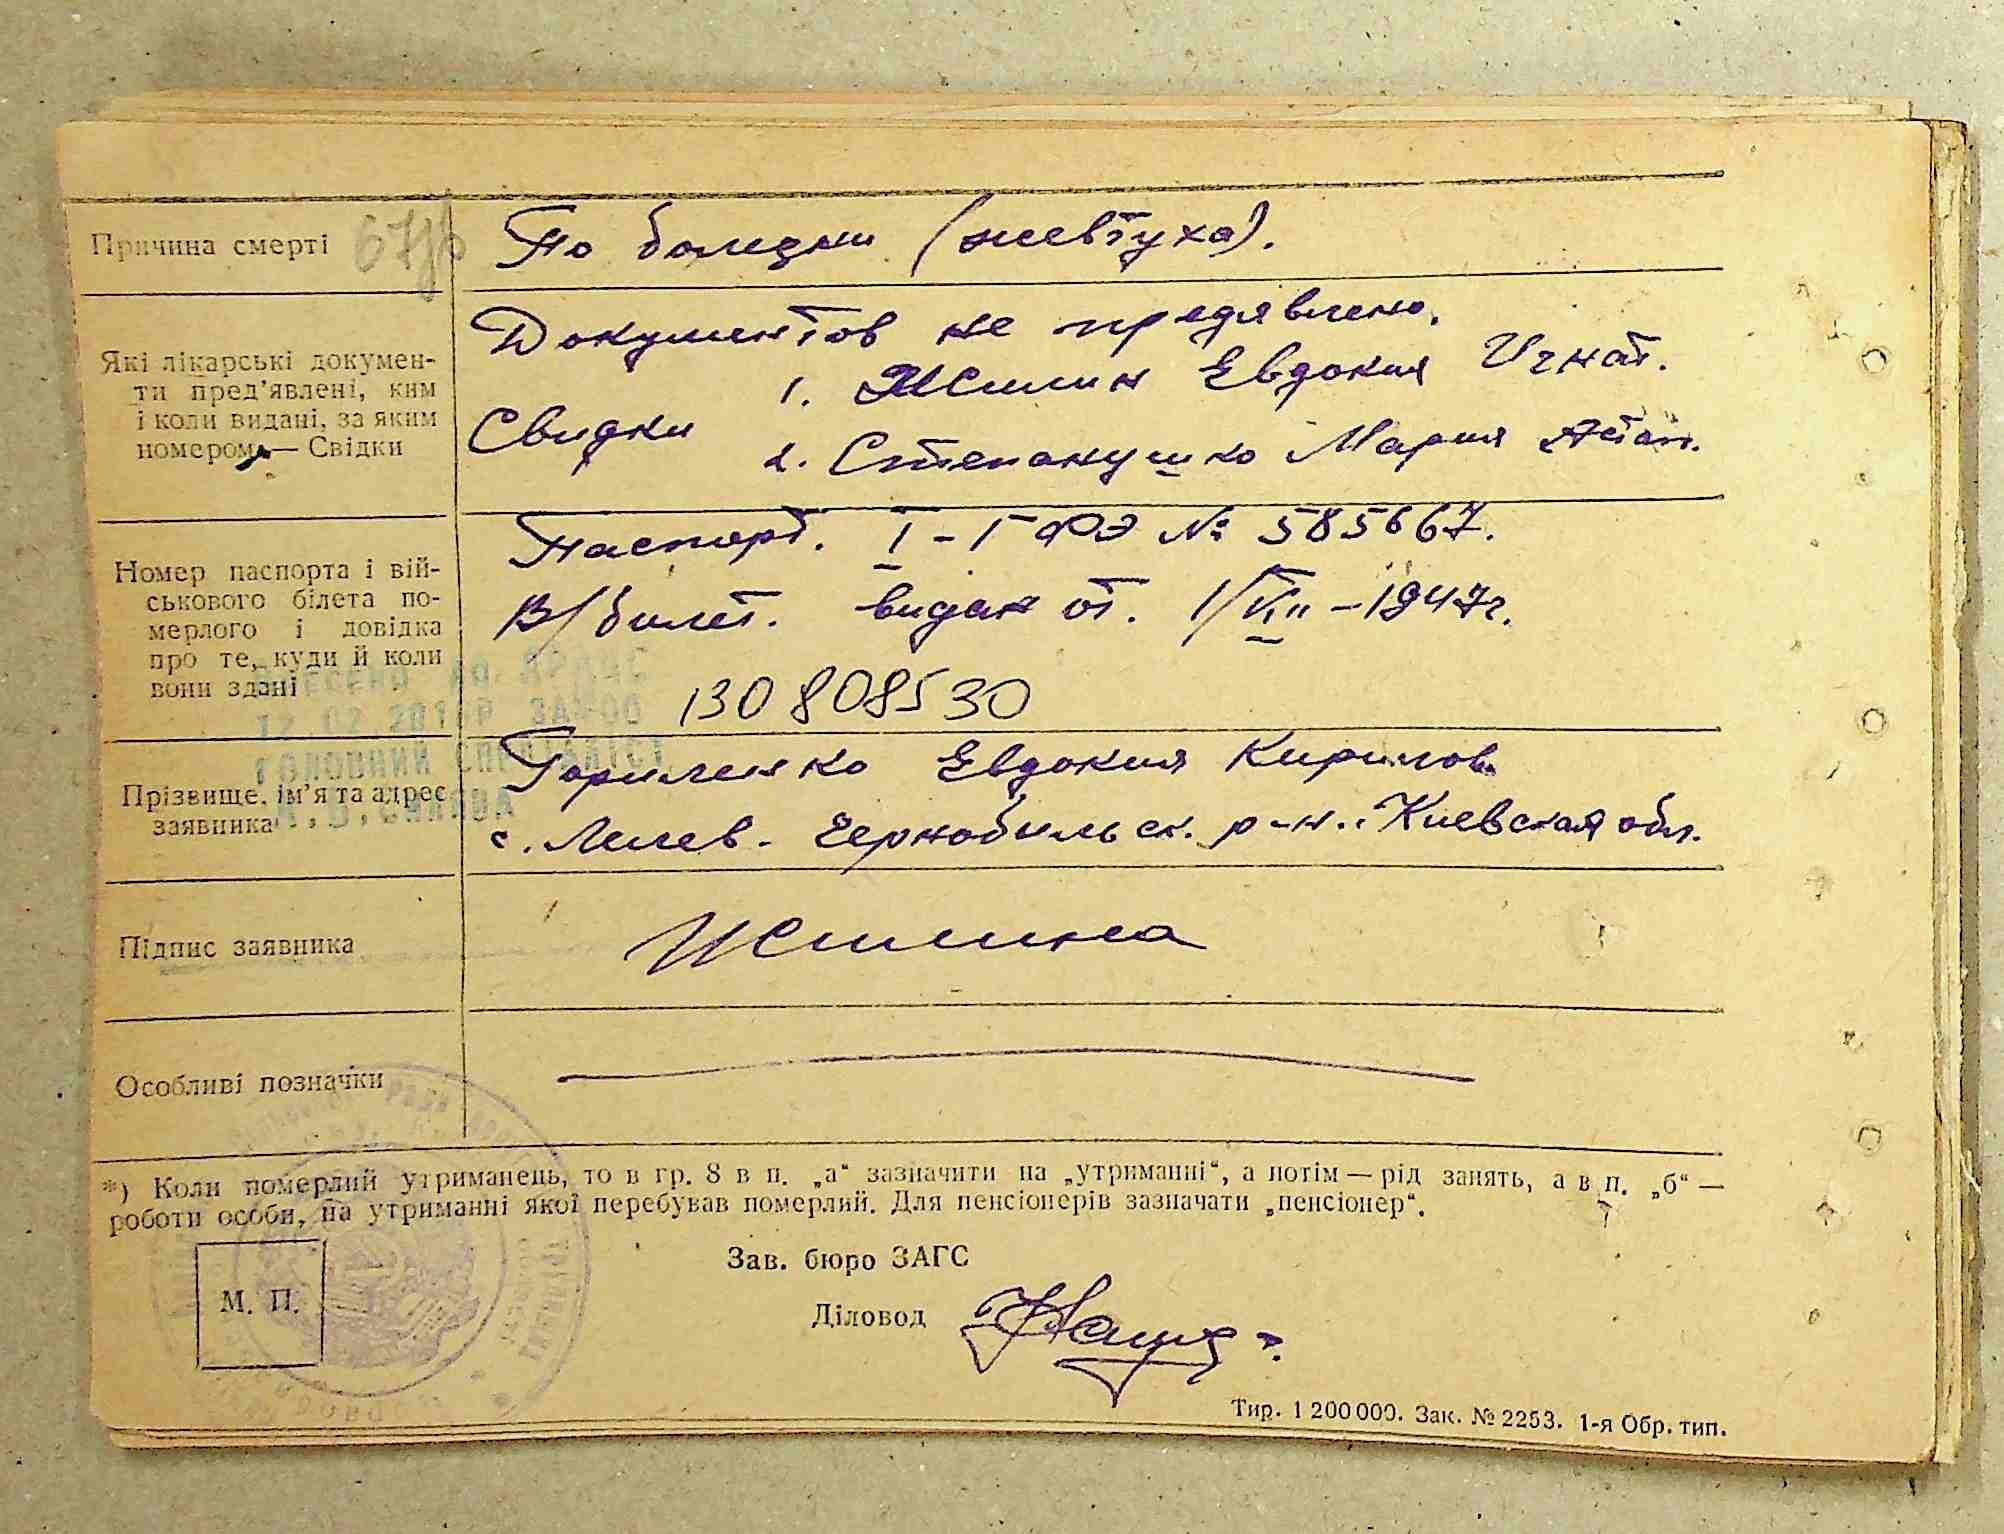 Причина смерті
По болезни (жевтуха).
Які лікарські докумен-
ти пред’явлені, ким
і коли видані, за яким
номером — Свідки
Документов не предявлено.
Свидки 1. Жилин Евдокия Игнат.
2. Степанушко Мария Астап.
Номер паспорта і вій-
ськового білета по-
мерлого і довідка
про те, куди й коли
вони здані
Паспорт. I-ГФЭ № 585667.
В/билет. видан от. 1/VII-1947г.
130808530
12.02.201
ГОЛОВНИЙ СПЕЦІАЛІСТ
Прізвище, ім’я та адрес
заявника
Евдокия Кирилов.
с. Лелев. Чернобильск. р-н. Киевская обл.
Підпис заявника
Жилина
Особливі позначки
*) Коли померлий утриманець, то в гр. 8 в п. „а“ зазначити на „утриманні“, а потім — рід занять, а в п. „б“ —
роботи особи, на утриманні якої перебував померлий. Для пенсіонерів зазначати „пенсіонер“.
М. П.
Зав. бюро ЗАГС
Діловод
Тир. 1 200 000. Зак. № 2253. 1-я Обр. тип.